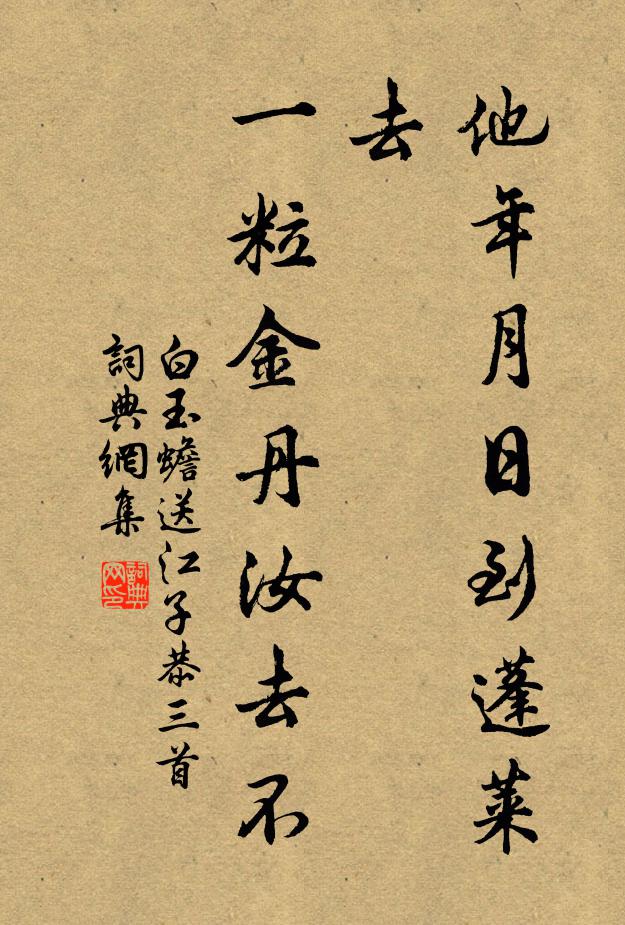 他年月日到蓬莱
去
一粒金丹汝去不
白玉蟾送江子恭三首
詞典網集
詞典
网印